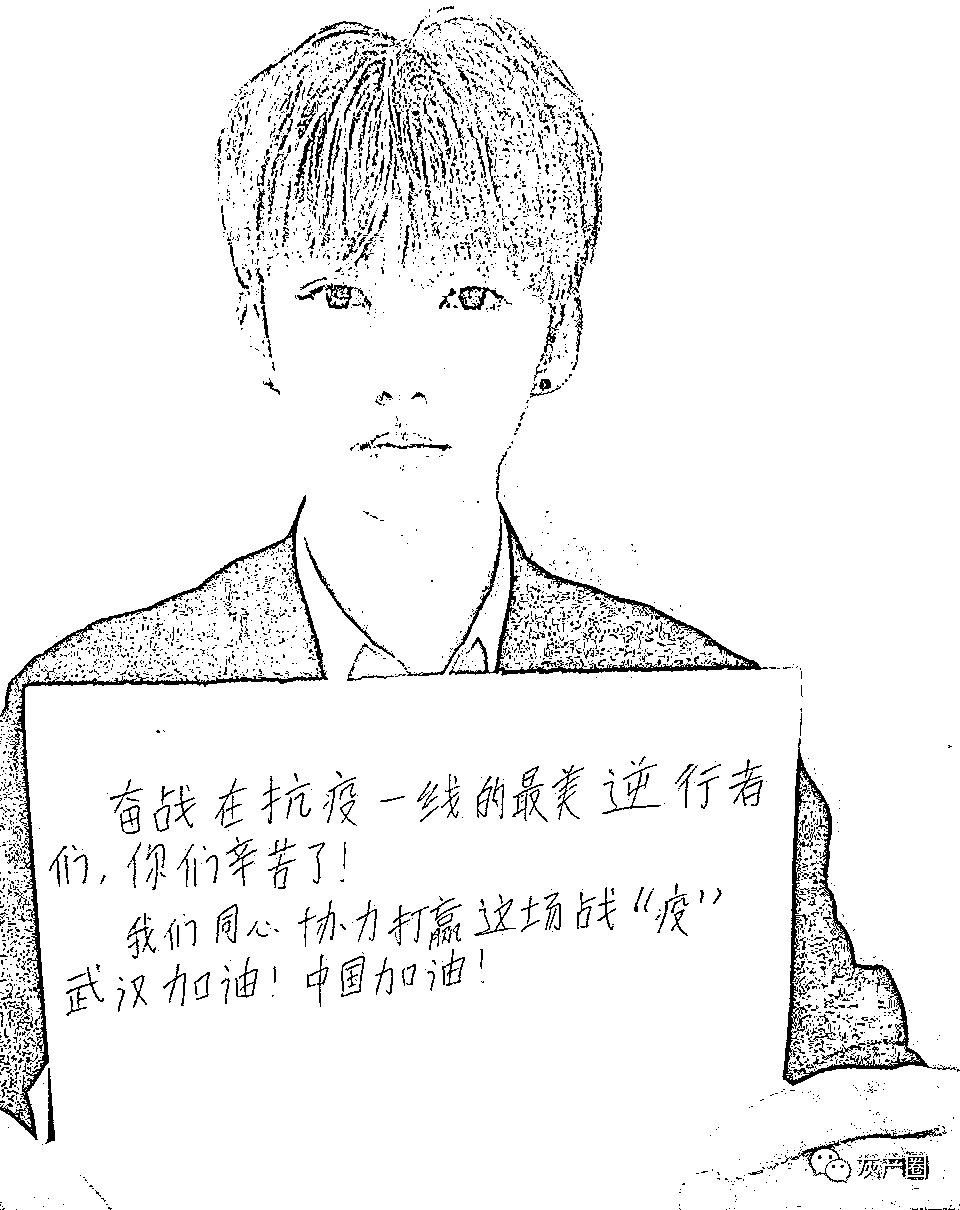 奋战在抗疫一线的最美逆行者
们,你们辛苦了!
我们同心协力打赢这场战“疫”
武汉加油!中国加油!
灰产圈